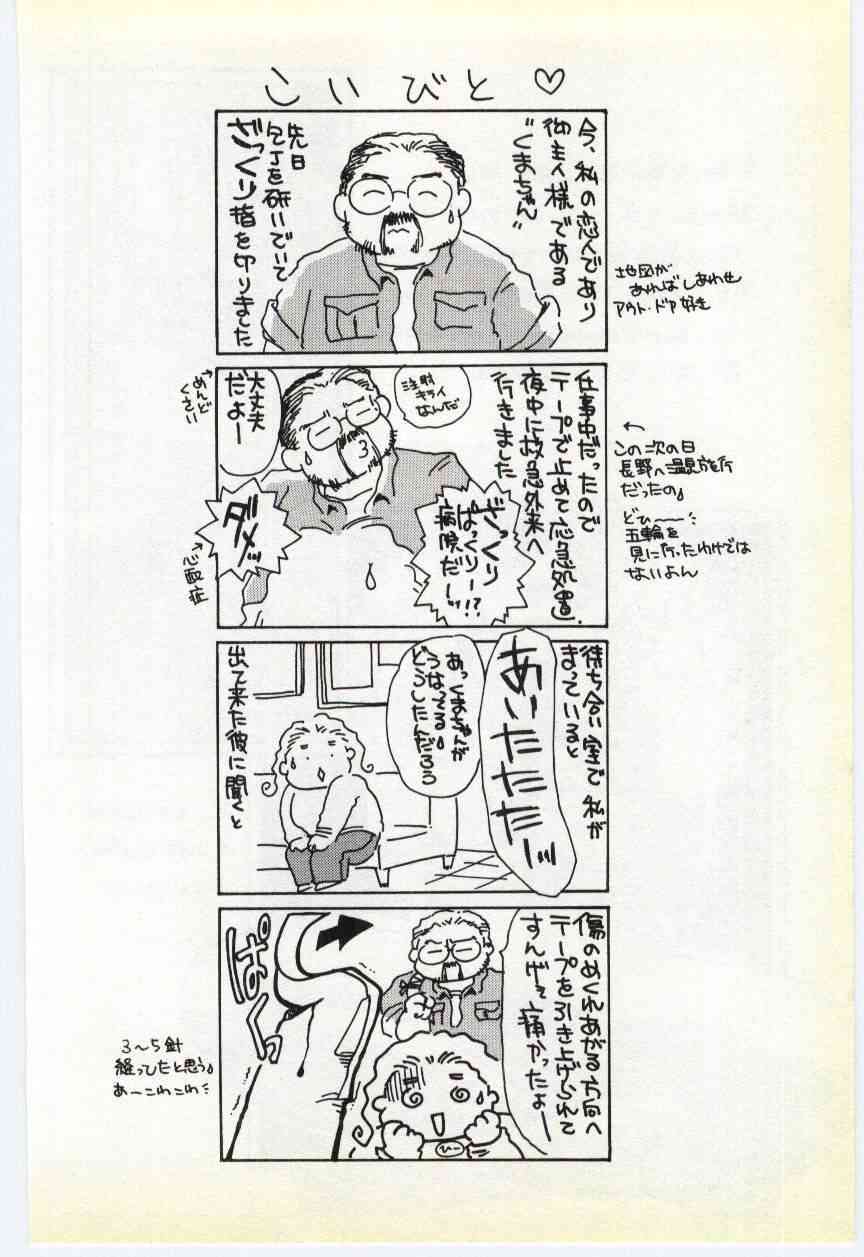 こいびと♡
今、私の恋人であり
御主人様である
“くまちゃん”
先日
包丁を研いでいて
ざっくり指を切りました
地図が
あればしあわせ
アウト・ドア好き
仕事中だったので
テープで止めて応急処置。
夜中に救急外来へ
行きました
注射
キライ
なんだ
大丈夫
だよー
めんど
くさい
ざっくり
ぱっくりー!?
病院だーッ
ダメッ
心配症
←
この次の日
長野へ温泉旅行
だったの。
どひ〜〜
五輪を
見に行ったわけでは
ないよん
待ち合い室で私が
まっていると
あいたたたーッ
あっくまちゃんが
うなってる。
どうしたんだろう
出て来た彼に聞くと
傷のめくれあがる方向へ
テープを引き上げられて
すんげェ痛かったよー
ぱくっ
ひー
3〜5針
縫ってたと思う。
あーこわこわ